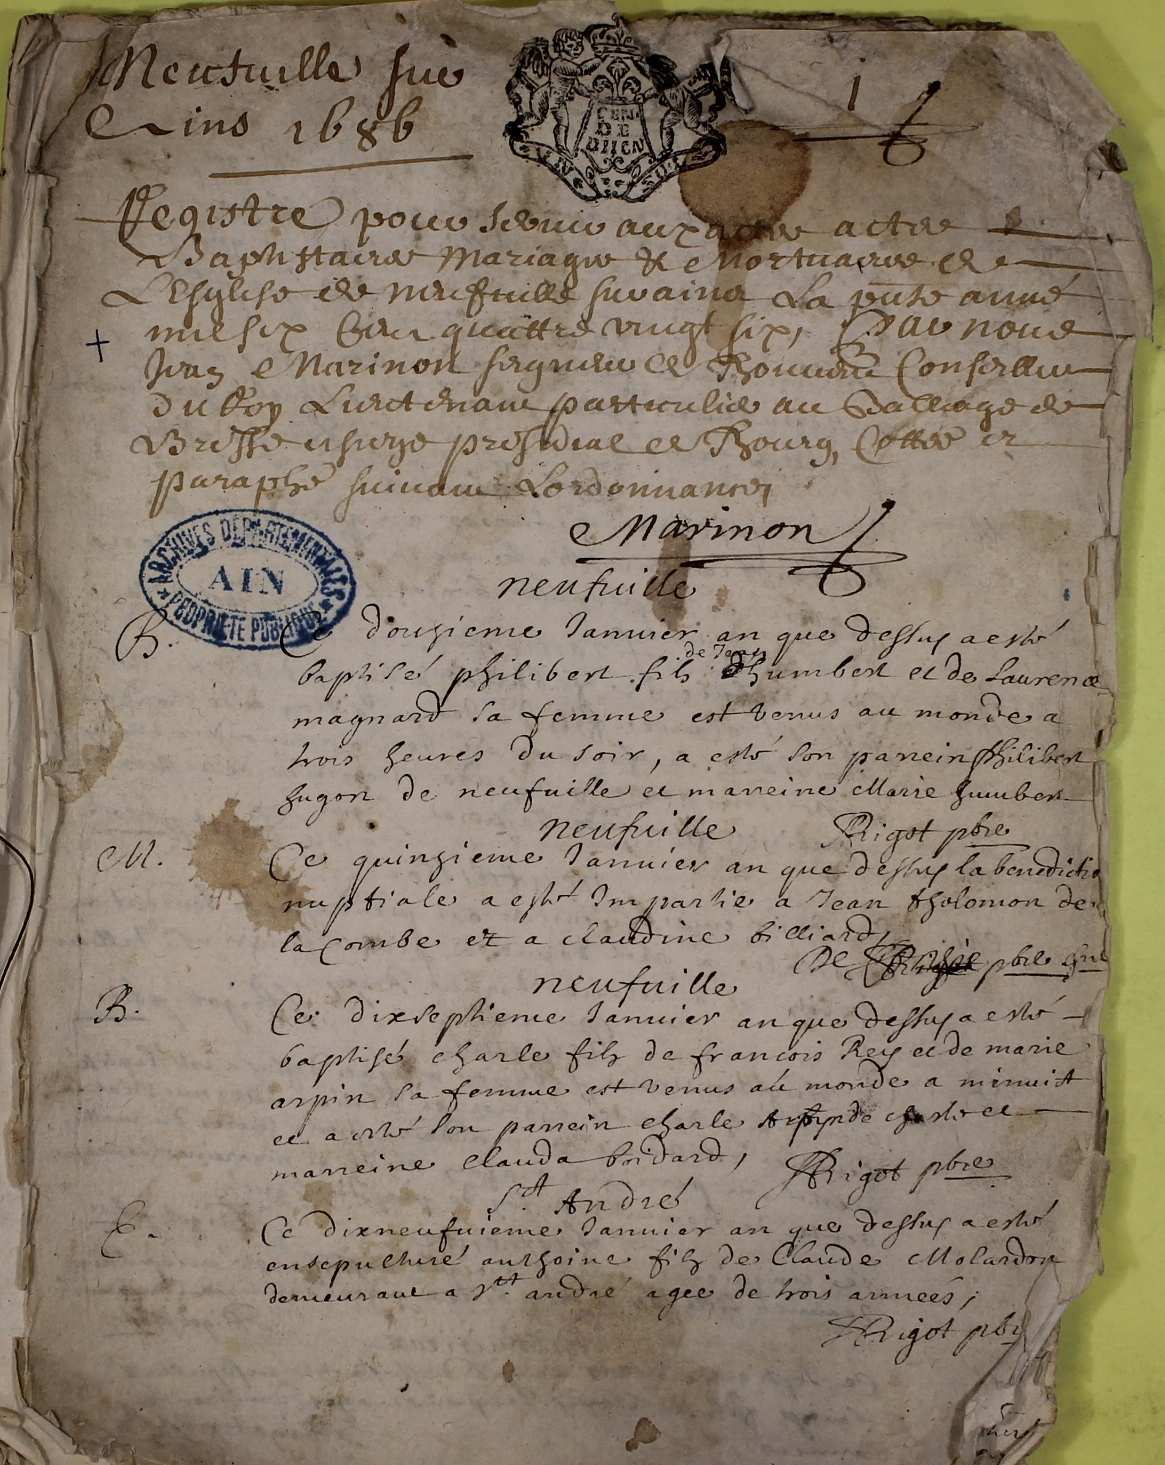 Neufuille sur
Eins 1686
GEN.
DE
DIION
VN SOL
1
Registre pour seruir aux actes
Baptistaire Mariagre & Mortuaire de
LEsglise de neufuille sur ains La pnte anné
mil six Cent quattre vingt six, Par nous
Jean Marinon seigneur de Conseiller
Du Roy Lieutenant particulier au Bailliage de
Bresse et siege presidial de Bourg, Cotté et
paraphé suiuant Lordonnance
Marinon
ARCHIVES DÉPARTEMENTALES
AIN
PROPRIÉTÉ PUBLIQUE
neufuille
B.
Ce dousieme Januier an que dessus a esté
de Jean
baptisé philibert fils dhumbert et de Laurence
magnard sa femme est venus au monde a
trois heures du soir, a esté son parrein philibert
hugon de neufuille et marreine Marie humbert
Rigot pbre
neufuille
M.
Ce quinsieme Januier an que dessus la benedictio
nuptiale a esté Impartie a Jean tholomon de
la Combe et a claudine billiard,
pbre
neufuille
B.
Ce dixseptieme Januier an que dessus a esté
baptisé charle fils de francois Rey et de marie
arpin sa femme est venus au monde a minuit
et a esté son parrein charle et
marreine Clauda boidard,
Rigot pbre
st André
E.
Ce dixneufuieme Januier an que dessus a esté
ensepulturé anthoine fils de Claude Molardon
demeurant a st andré agee de trois annees;
Rigot pbr